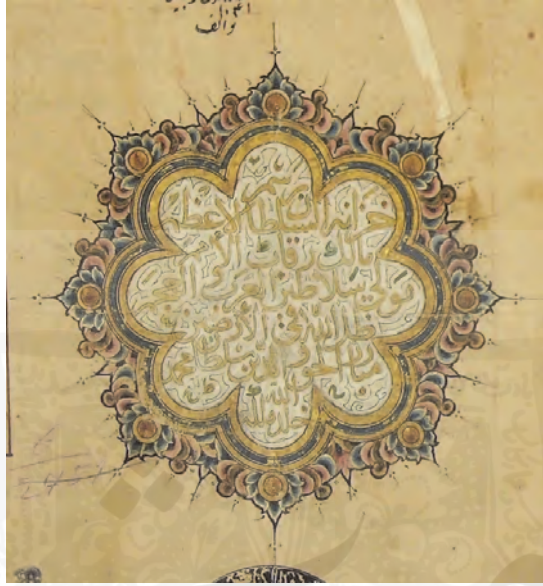 وألف
برسم
خزانة السلطان الاعظم
مالك رقاب الامم
مولى سلاطين العرب والعجم
ظل الله في الارضين
الحق والدين سلطان محمد
خلد الله ملكه